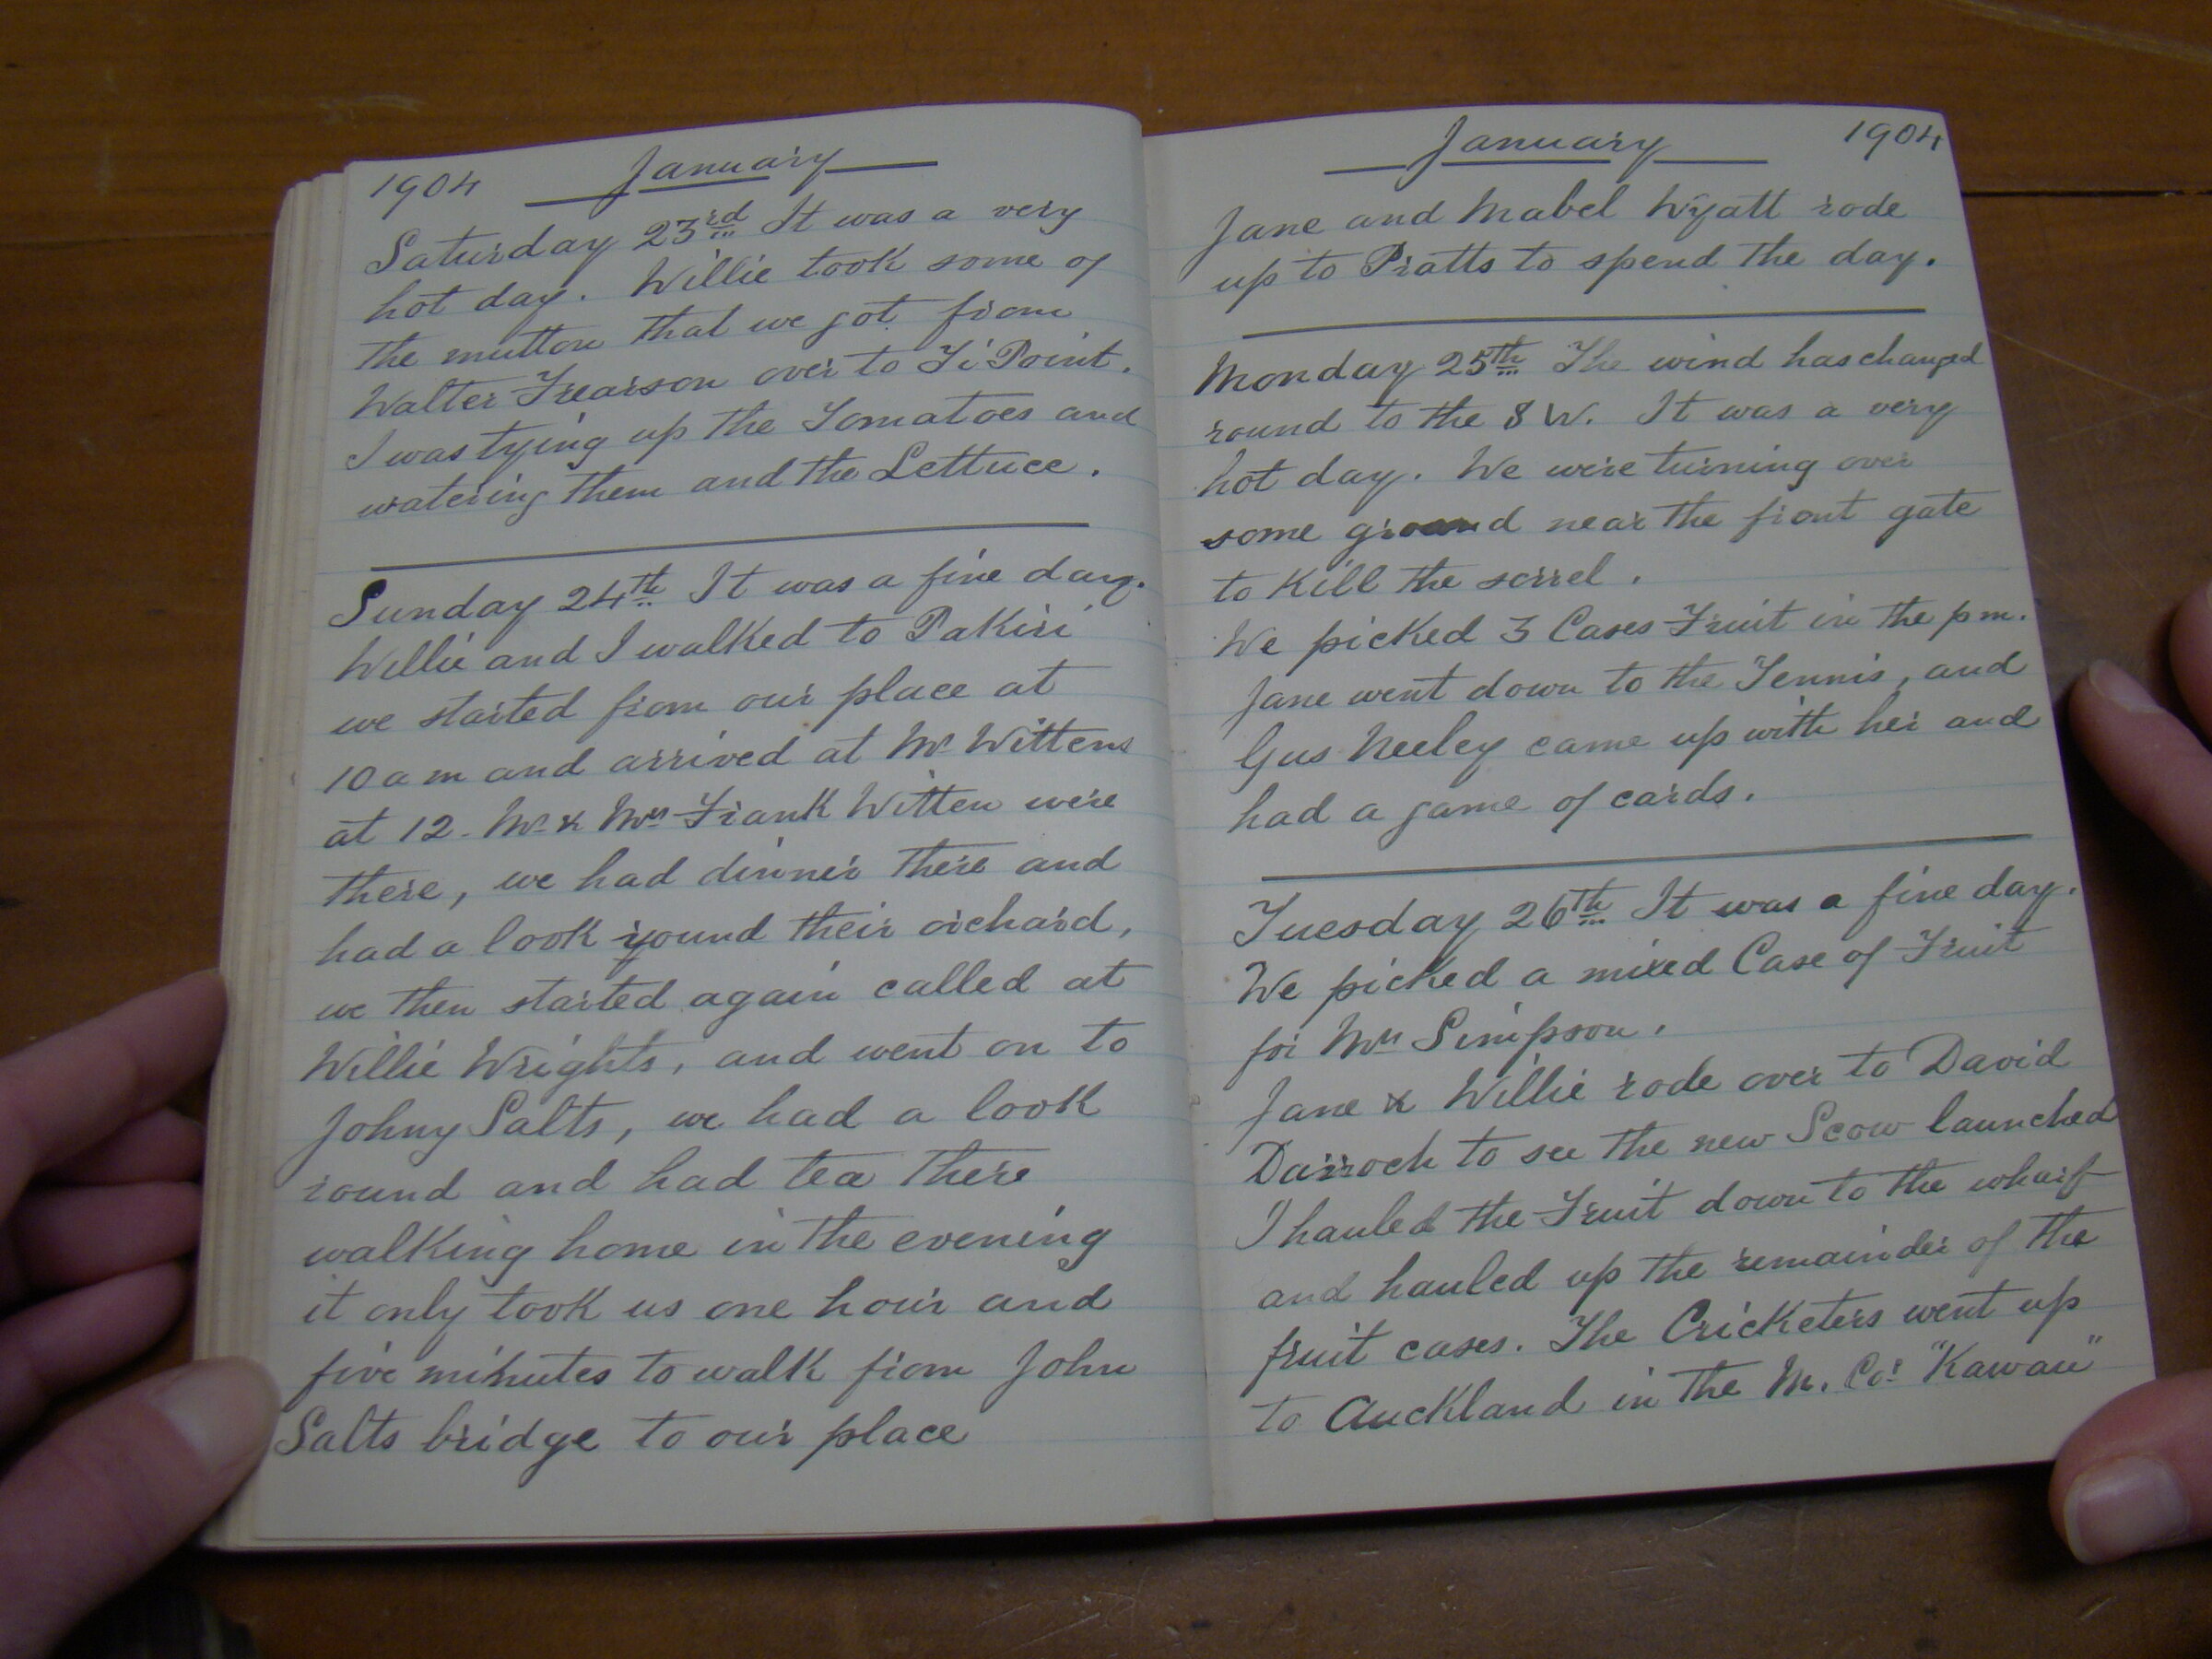 1904 January
Saturday 23rd It was a very
hot day. Willie took some of
the mutton that we got from
Walter Frearson over to Ti Point.
I was tying up the Tomatoes and
watering them and the Lettuce.
Sunday 24th It was a fine day.
Willie and I walked to Pakiri
we started from our place at
10 a m and arrived at Mr Wittens
at 12 - Mr & Mrs Frank Witten were
there, we had dinner there and
had a look round their orchard,
we then started again called at
Willie Wrights, and went on to
Johny Salts, we had a look
round and had tea there
walking home in the evening
it only took us one hour and
five minutes to walk from John
Salts bridge to our place
January 1904
Jane and Mabel Wyatt rode
up to Pratts to spend the day.
Monday 25th The wind has changed
round to the S W. It was a very
hot day. We were turning over
some ground near the front gate
to kill the sorrel.
We picked 3 Cases Fruit in the p m.
Jane went down to the Tennis, and
Gus Neeley came up with her and
had a game of cards.
Tuesday 26th It was a fine day.
We picked a mixed Case of Fruit
for Mrs Simpson.
Jane & Willie rode over to David
Darroch to see the new Scow launched
I hauled the Fruit down to the wharf
and hauled up the remainder of the
fruit cases. The Cricketers went up
to Auckland in the M. Co's "Kawau"